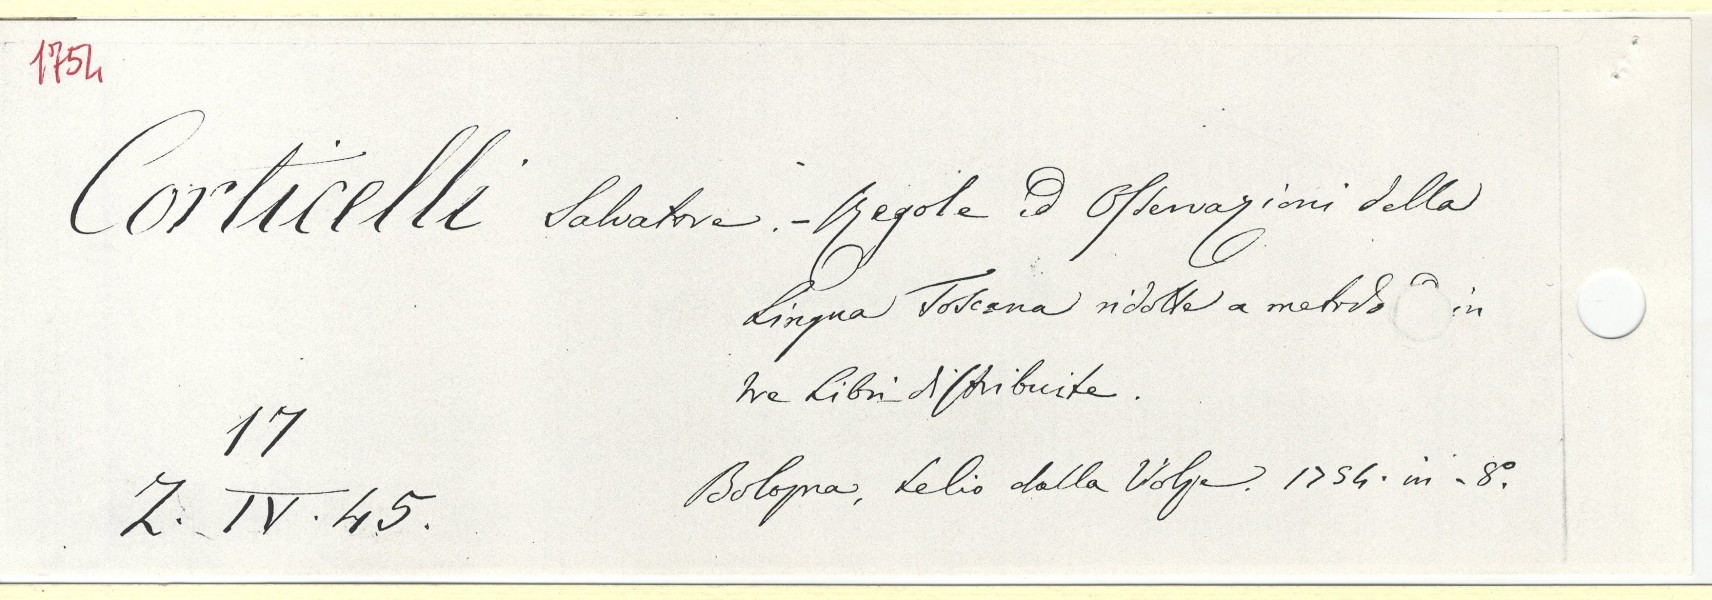 1754
Corticelli Salvatore. - Regole ed Osservazioni della
Lingua Toscana ridotte a metodo in
tre Libri distribuite.
17
Bologna, Lelio dalla Volpe. 1754. in-8º.
Z. IV. 45.